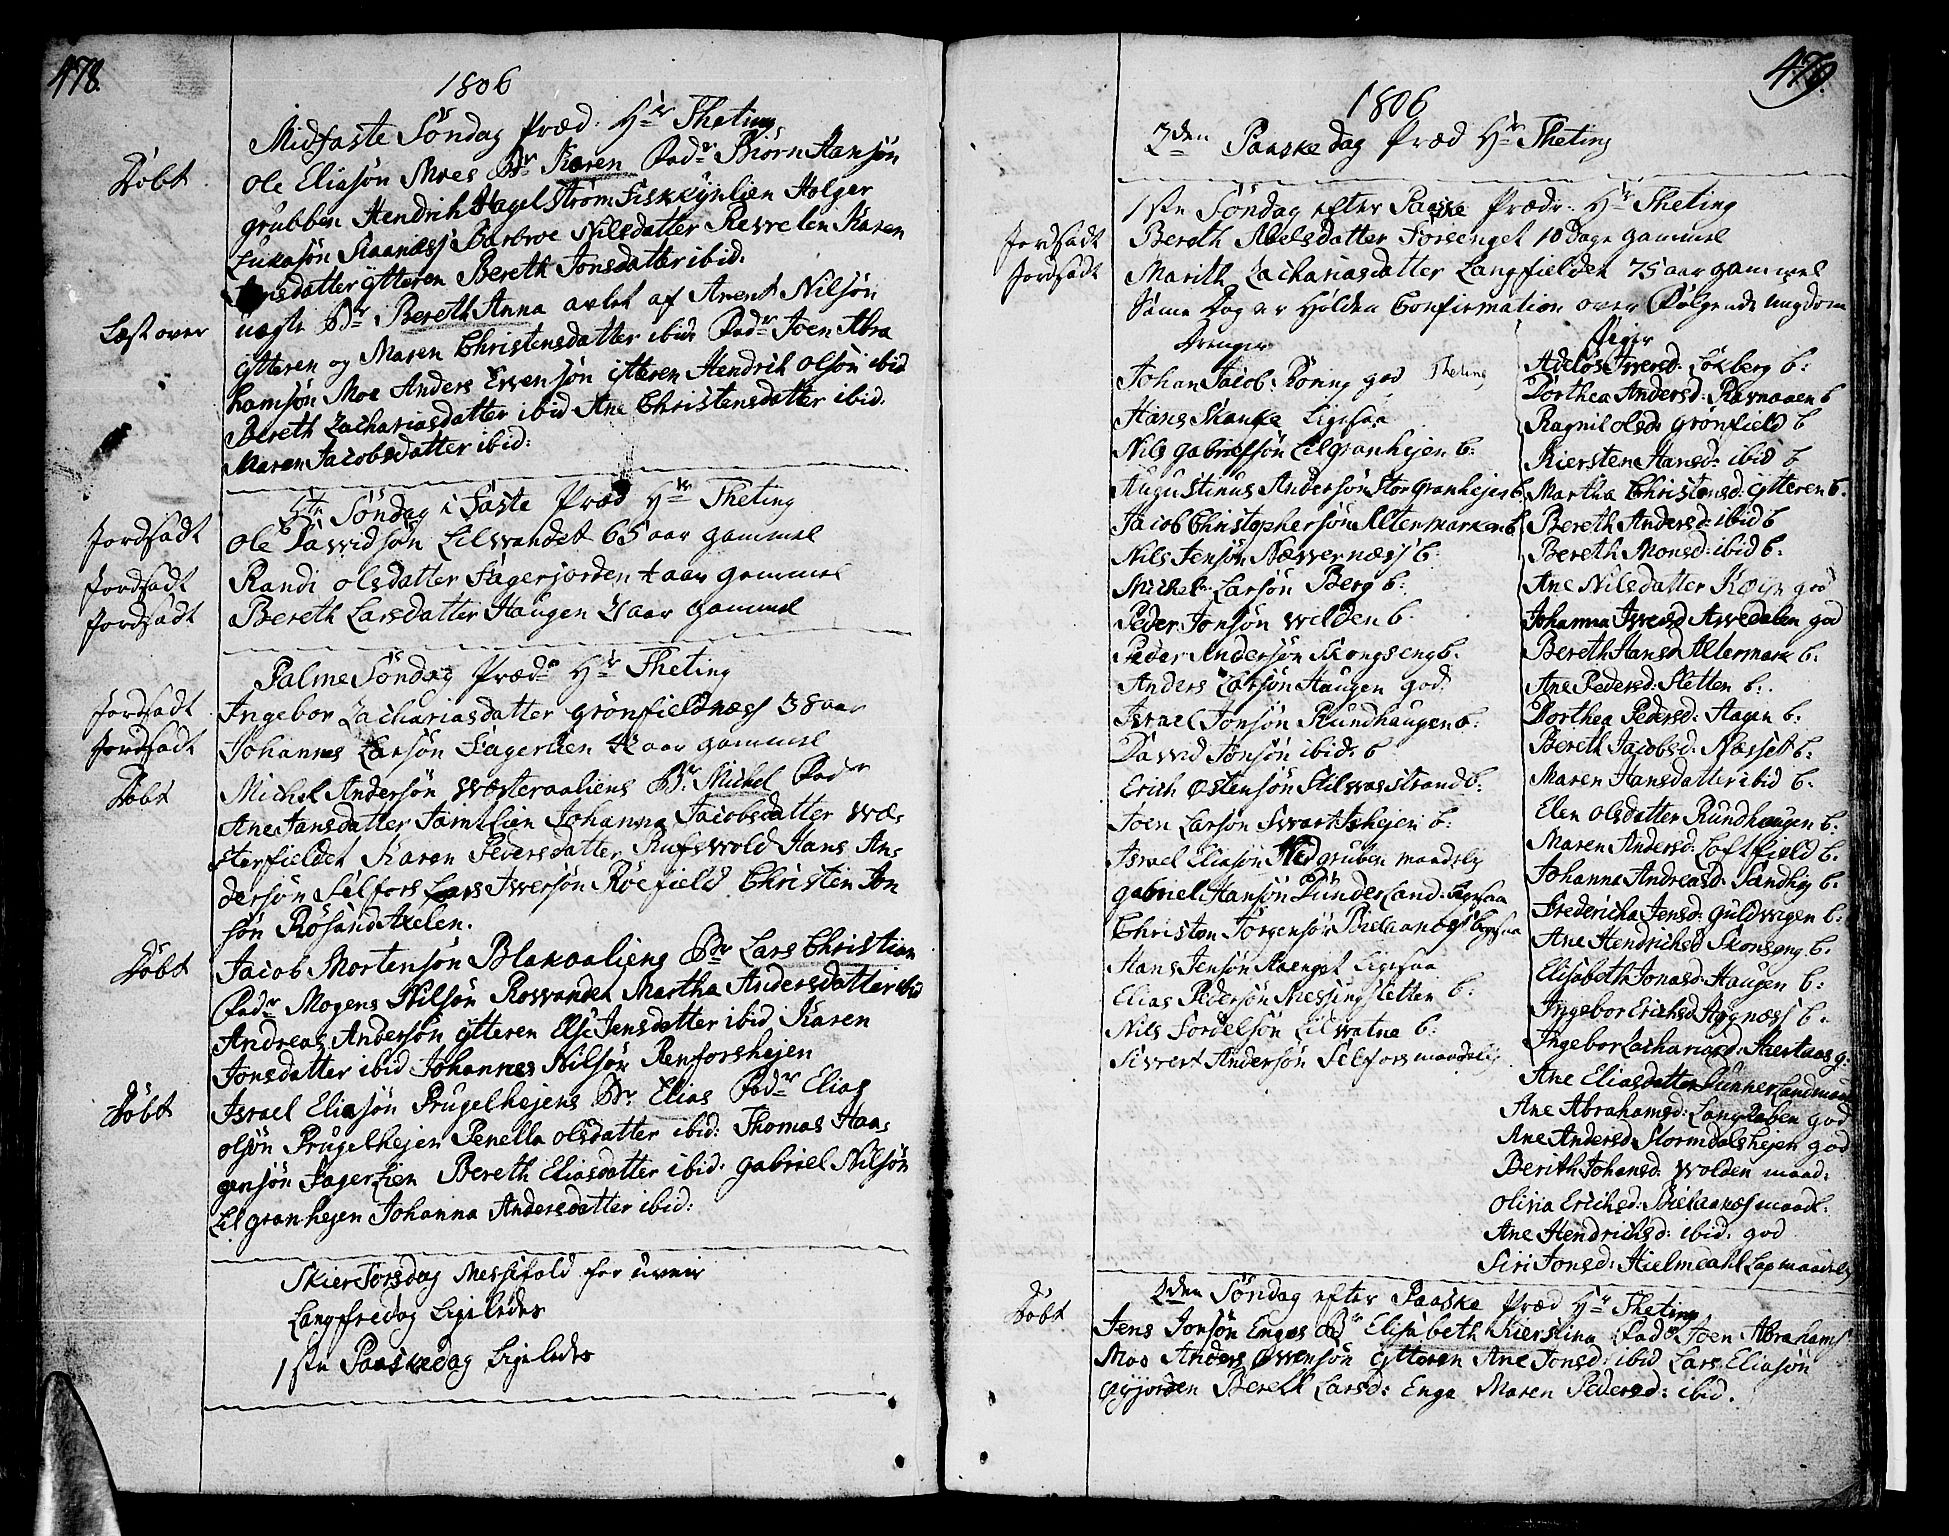 478.
1806
Midfaste Söndag Præd. Hr Theting
Döbt Ole Eliasön Moes Br Karen Fadr Biörn Hansön
grubben Hendrich Hagelström Holger
Lukasön Raanæss Barbroe Nilsdatter Revrelien Karen
datter ÿtteren Bereth Jonsdatter ibid:
Læst over uægte Br Bereth Anna avlet af Arent Nilsön
ÿtteren og Maren Christensdatter ibid: Fadr Joen Abra
hamsön Moe Anders Evensön ÿtteren Hendrich Olsön ibid
Bereth Zachariasdatter ibid Ane Christensdatter ibid.
Maren Jacobsdatter ibid:
5te Söndag i Faste Præd Hr Theting
Jordfadt Ole Davidsön Lilvandet 65 aar gammel
Jordfadt Randi Olsdatter Fagerjorden aar gammel
Jordfadt Bereth Larsdatter Haugen aar gammel
Palme Söndag Prædr Hr Theting
Jordfadt Ingebor Zachariasdatter Grönfieldnæss 38 aar
Jordfadt Johannes Larsön Fagerlien aar gammel
Döbt Michel Andersön Wæsteraaliens Br Michel Fadr
Ane Jansdatter Jamtlien Johanna Jacobsdatter Wæ:
sterfieldet Karen Pedersdatter Hans An:
dersön Silfors Lars Iversön Röefield Christen Jon
sön Rösand
Döbt Jacob Mortensön Blakaaliens Br Lars Christian
Fadr Mogens Nilsön Roswandet Martha Andersdatter ibid
Andreas Andersön ÿtteren Else Jensdatter ibid Karen
Jonsdatter ibid Johannes Nilsön Renforshejen
Döbt Israel Eliasön Prugelhejens Br. Elias Fadr Elias
Olsön Prugelhejen Penella Olsdatter ibid: Thomas Haa:
gensön Fagerlien Bereth Eliasdatter ibid: Gabriel Nilsön
Lilgranhejen Johanna Andersdatter ibid:
Skier Torsdag Messefald for uveir
Langfredag Ligeledes
1ste Paaskedag Ligeledes
479.
1806
2den Paaskedag Præd Hr Theting
1ste Söndag efter Paaske Prædr. Hr Theting
Jordfadt Bereth Abelsdatter Forsenget 10 Dage gammel
Jordfadt Marith Zachariasdatter Langfieldet 75 aar gammel
Samme Dag er holden Confirmation over Fölgende ungdom
Drenger
Johan Jacob Röring god Theting
Hans Skanke Ligesaa
Nils Gabrielsön Lilgranhejen b:
Augustinus Andersön Storgranhejen b
Jacob Christophersön Altermarken b
Nils Jensön Næwernæss b.
Michel Larsön Berg b:
Peder Jonsön Welden b.
Peder Andersön Skongseng b.
Anders Larsön Haugen god.
Israel Jonsön Rundhaugen b:
David Jonsön ibid: b
Erich Östensön Stilwasstrand b:
Joen Larsön Swartishejen b:
Israel Eliasön gruben maadelig
Gabriel Hansön Dunderland: Ligesaa
Christen Jörgensön Bielaanæss Ligesaa
Hans Jensön Ligesaa
Elias Pedersön Messingsletten b:
Nils Fordelsön Lilwatne b:
Sivvert Andersön Silfors maadelig
Piger
Adelös Iversd: Lökberg b:
Dorthea Andersd: Ravnaaen b
Ragnil Olsd: Grönfield b
Kiersten Hansd: ibid b
Martha Christensd: ÿtteren b.
Bereth Andersd: ibid b
Bereth Monsd: ibid b.
Ane Nilsdatter god
Johanna Iversd god
Bereth Hansd Altermark b.
Ane Pedersd: Sletten b:
Dorthea Pedersd: Hagen b:
Bereth Jacobsd: Næsset b:
Maren Hansdatter ibid b.
Elen Olsdatter Rundhaugen b.
Maren Andersd: Loftfield b.
Johanna Andreasd: Sandhej b:
Fredericha Jensd: Guldvigen b:
Ane Hendrichsd Skonseng b:
Elisabeth Jonasd: Haugen b:
Ingebor Erichsd Högnæss b.
Ingebor Zachariasd: g:
Ane Eliasdatter Dunnerland
Ane Abrahamsd: god
Ane Andersd: Stormdalshejen god
Berith Johansd: Wolden maad:
Olivia Erichsd: Bielaanæs maad:
Ane Hendrichsd: ibid: god
Siri Jonsd: Hielmdahl Lap maadelig
2den Söndag efter Paaske Præd Hr Theting
Döbt Jens Jonsön Enges Br Elisabeth Kierstina Fadr Joen Abrahams
Moe Anders Evensön ÿtteren Ane Jonsd: ibid Lars Eliasön
Öyjorden Bereth Larsd: Enge Maren Pedersd: ibid.